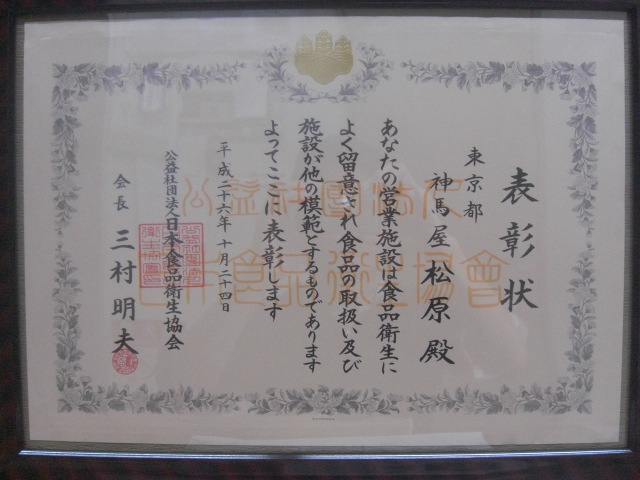 表彰状
東京都
神馬屋 松原 殿
あなたの営業施設は食品衛生に
よく留意され食品の取扱い及び
施設が他の模範とするものであります
よってここに表彰します
平成二十六年十月二十四日
公益社団法人日本食品衛生協会
会長 三村明夫